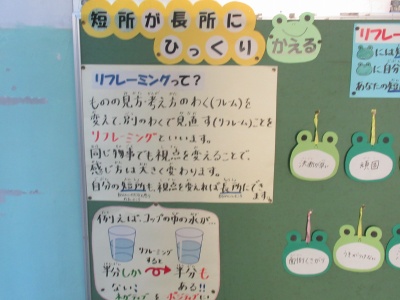 短所が長所に
ひっくり
かえる
リフレーミングって？
ものの見方・考え方のわく(フレーム)を
変えて、別のわくで見直す(リフレーム)ことを
リフレーミングといいます。
同じ物事でも視点を変えることで、
感じ方は大きく変わります。
自分の短所も、視点を変えれば長所にでき
ます。
例えば、コップの中の水が…
リフレーミング
すると
半分しか
半分も
ない；
ある!!
ネガティブを
ポジティブに
"リフレー
には
に自分
あなたの短
頑固